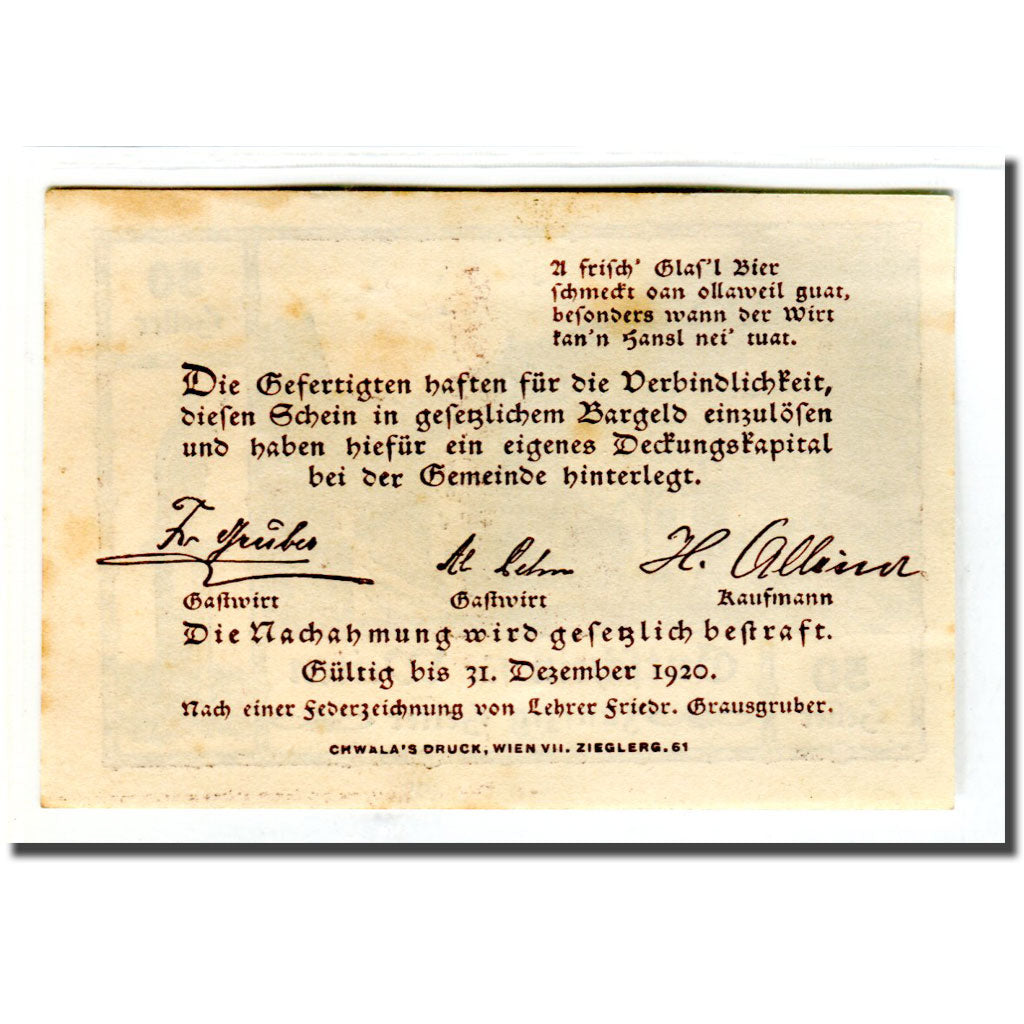 A frisch' Glas'l Bier
schmeckt oan ollaweil guat,
besonders wann der Wirt
kan'n Hansl nei' tuat.
Die Gefertigten haften für die Verbindlichkeit,
diesen Schein in gesetzlichem Bargeld einzulösen
und haben hiefür ein eigenes Deckungskapital
bei der Gemeinde hinterlegt.
Fr Gruber
H.
Gastwirt Gastwirt Kaufmann
Die Nachahmung wird gesetzlich bestraft.
Gültig bis 31. Dezember 1920.
Nach einer Federzeichnung von Lehrer Friedr. Grausgruber.
CHWALA'S DRUCK, WIEN VII. ZIEGLERG. 61